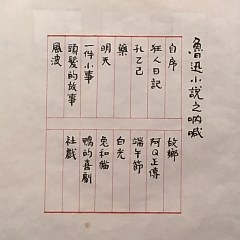 魯迅小說之吶喊
自序
狂人日記
孔乙己
藥
明天
一件小事
頭髮的故事
風波
故鄉
阿Q正傳
端午節
白光
兔和貓
鴨的喜劇
社戲